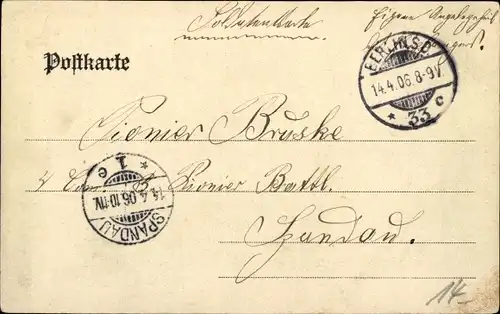 Soldatenkarte
Eigene Angelegenheit
Postkarte
BERLIN S.O.
14.4.06.8-9V.
* 33 c
Pionier Bruske
* 1 e
14.4.06.10-11V.
SPANDAU
4 Com. 3. Pionier Battl.
Spandau.
14-